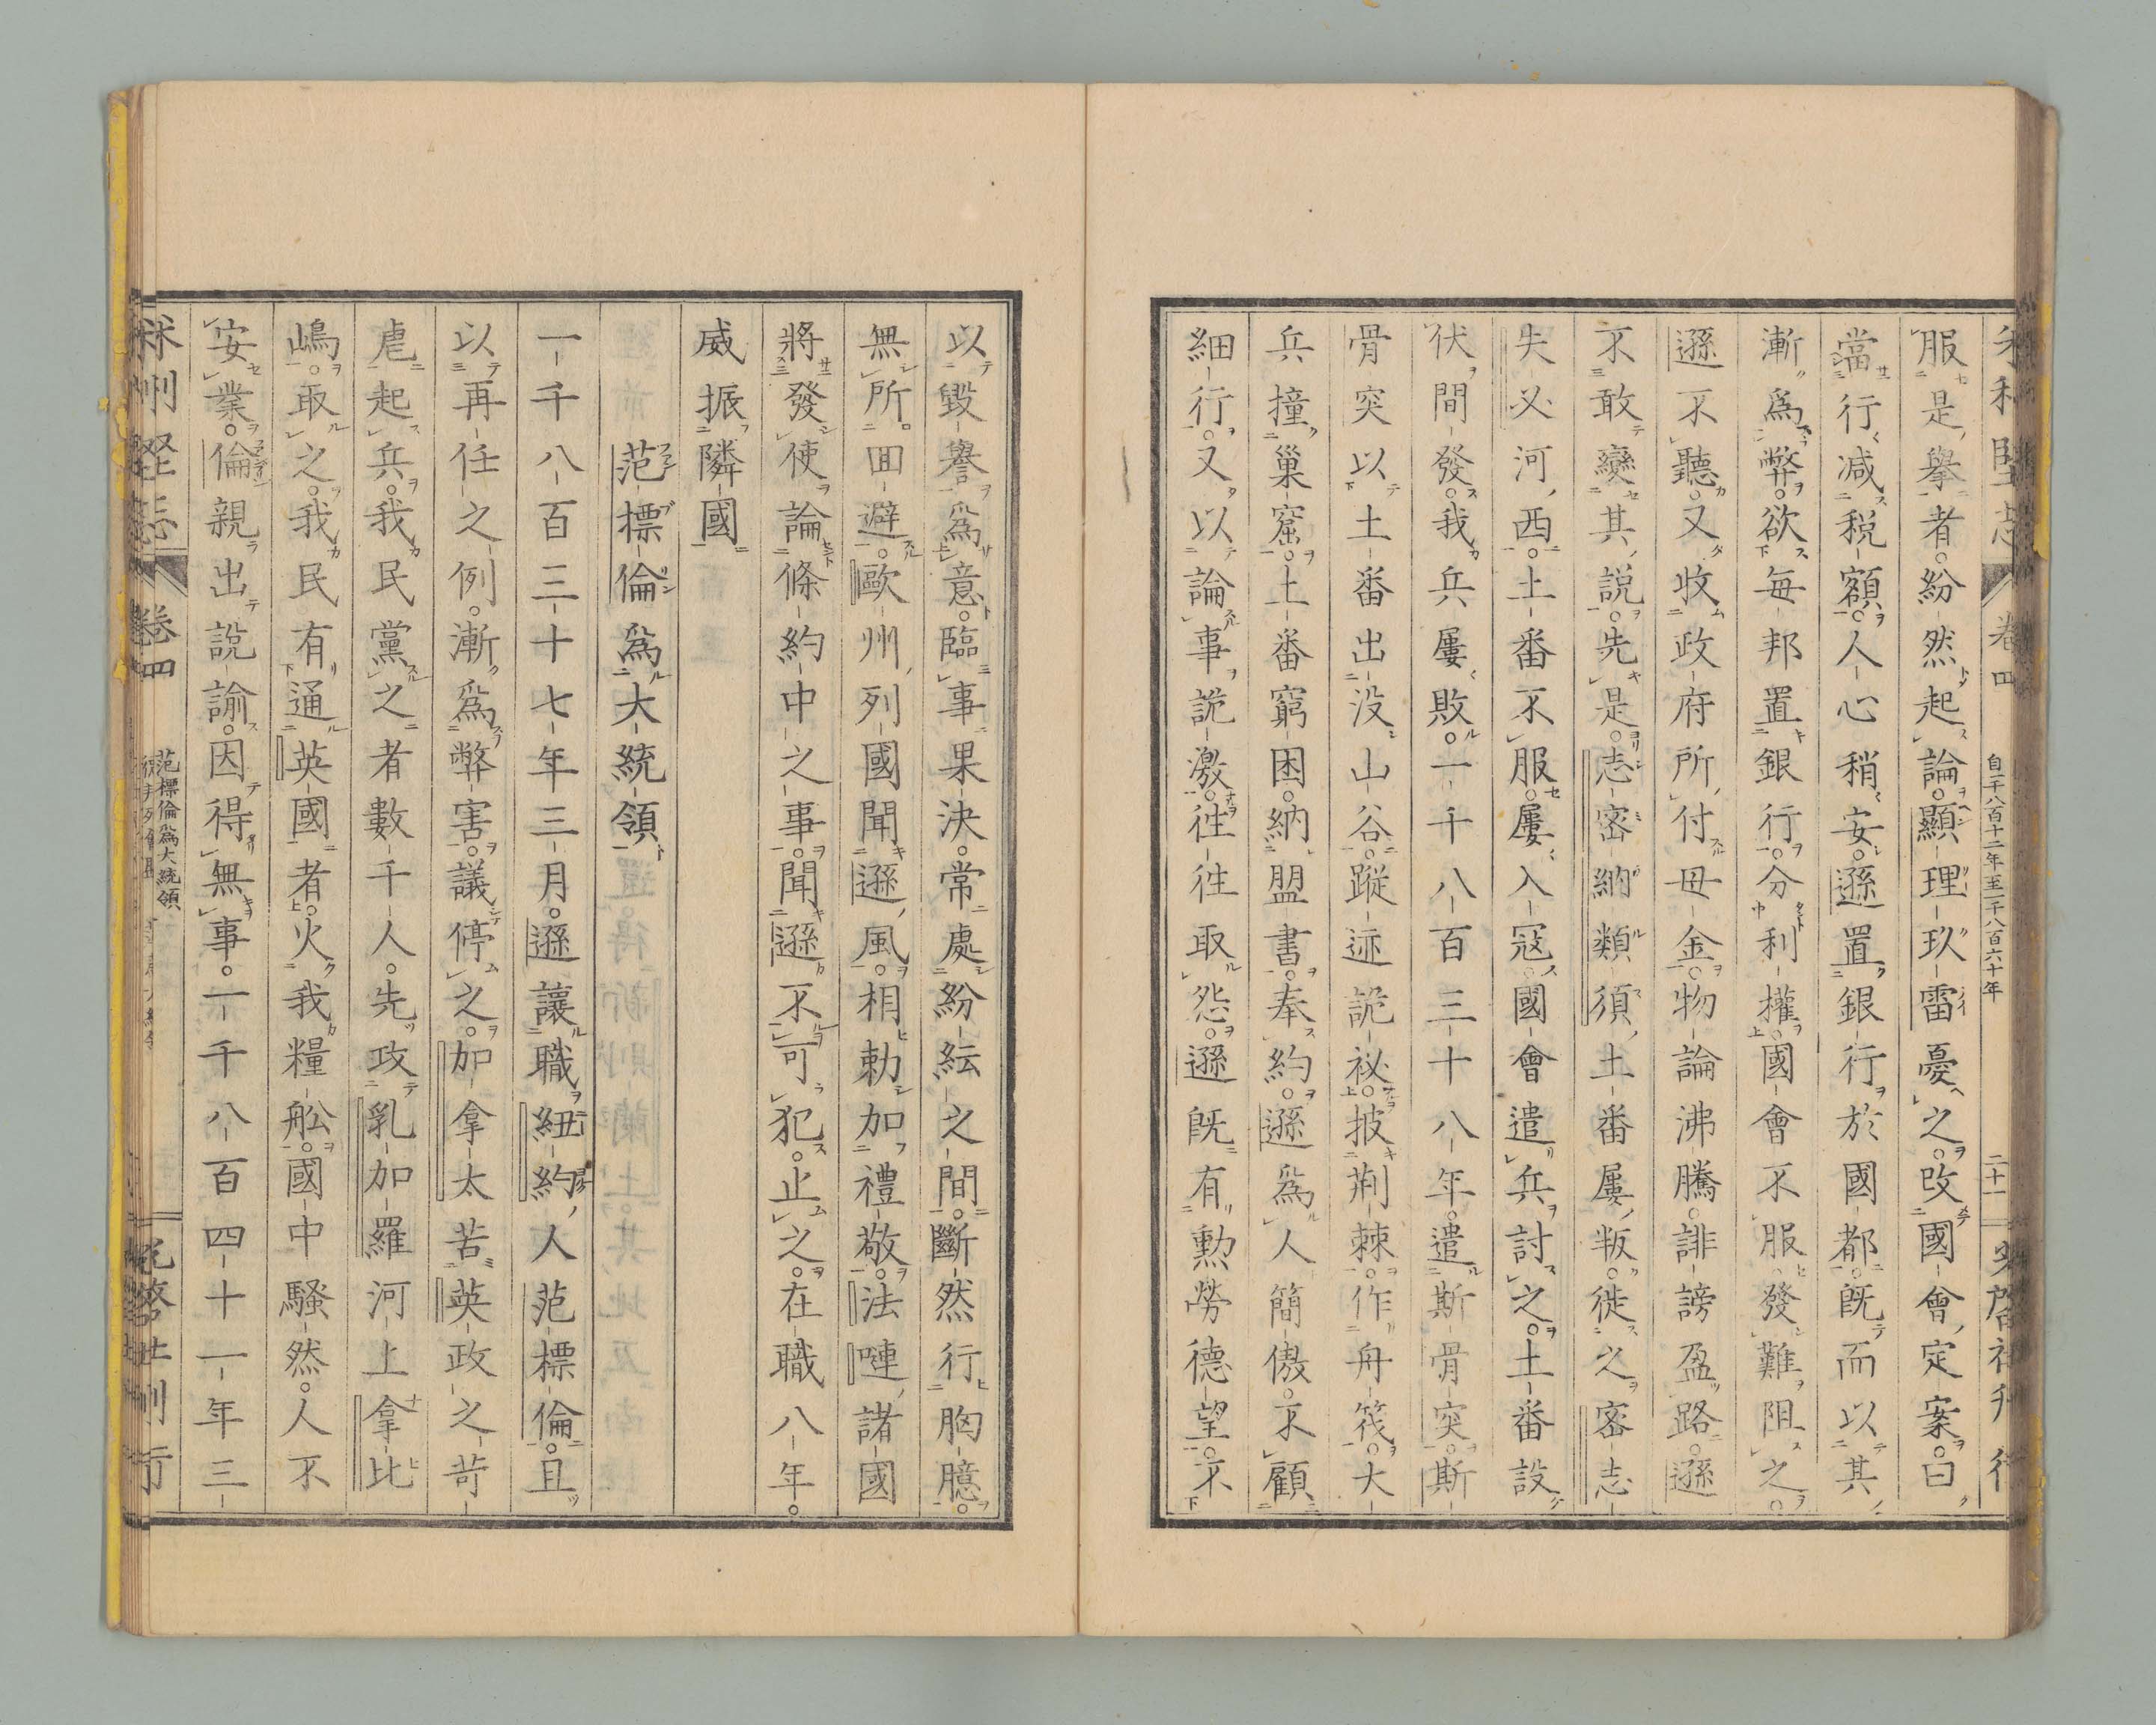 卷四 自一千八百十二年至一千八百六十年 二十一
服是擧者。紛然起論。顯理玖雷憂之。改國會定案。曰
當行減税額。人心稍安。遜置銀行於國都。既而以其
漸爲弊。欲每邦置銀行。分利權。國會不服。發難阻之。
遜不聽。又收政府所付母金。物論沸騰。誹謗盈路。遜
不敢變其説。先是。志密納類須土番屢叛。徙之密志
失必河西。土番不服。屢入冦。國會遣兵討之。土番設
伏間發。我兵屢敗。一千八百三十八年。遣斯骨突。斯
骨突以土番出没山谷。蹤迹詭祕。披荆棘。作舟筏。大
兵撞巢窟。土番窮困。納盟書。奉約。遜爲人簡傲。不顧
細行。又以論事詭激。往往取怨。遜既有勲勞德望。不
以毀譽爲意。臨事果決。常處紛紜之間。斷然行胸臆。
無所回避。歐州列國聞遜風。相勅加禮敬。法嗹諸國
將發使論條約中之事。聞遜不可犯。止之。在職八年。
威振隣國
范標倫爲大統領
一千八百三十七年三月。遜讓職紐約人范標倫。且
以再任之例。漸爲弊害。議停之。加拿太苦英政之苛
虐起兵。我民黨之者數千人。先攻乳加羅河上拿比
嶋。取之。我民有通英國者。火我糧舩。國中騷然。人不
安業。倫親出説諭。因得無事。一千八百四十一年三
米州堅志 卷四 范標倫爲大統領